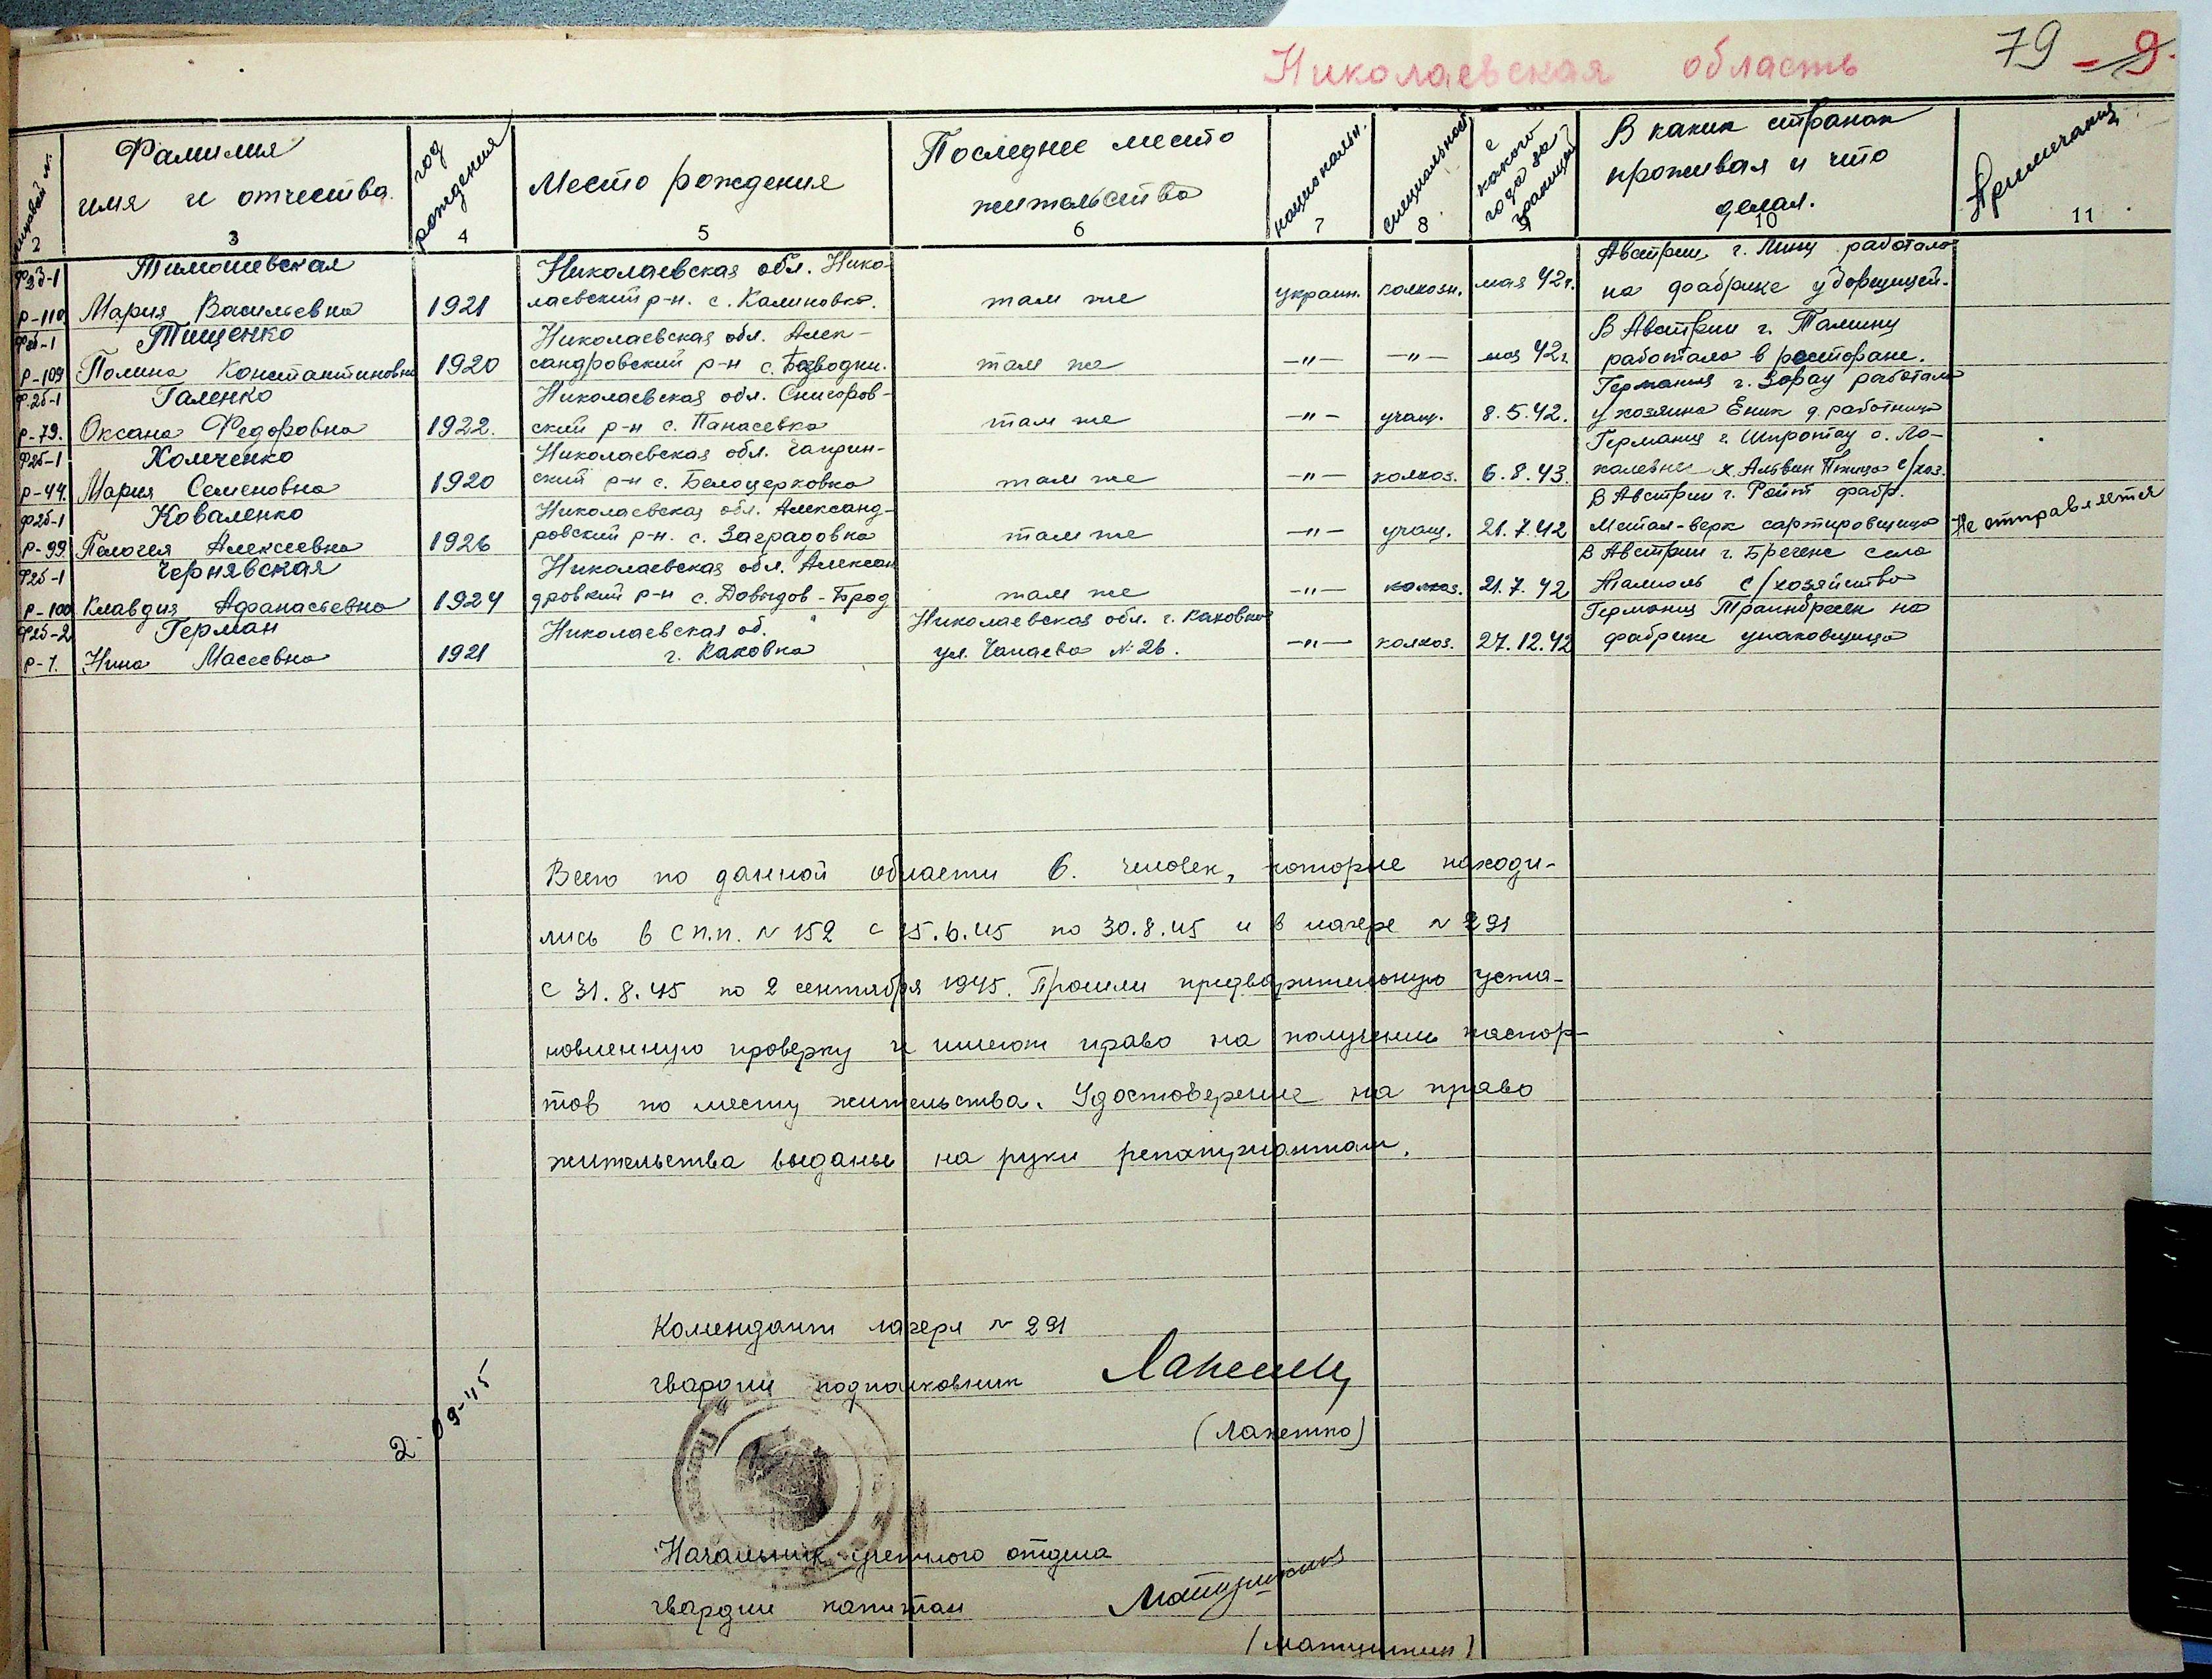 Николаевская область
79 - 9.
Фамилия имя и отчества.
год рождения
Место рождения
Последнее место жительства
национальн.
специальность
с какого года за границей
В каких странах проживал и что делал.
Примечания
2 3 4 5 6 7 8 9 10 11
Тимошевская Николаевская обл. Нико- Австрии, г. Линц работала
Р-110 Мария Васильевна 1921 лаевский р-н. с. Калиновка. там же украин. колхозн. мая 42г. на фабрике уборщицей.
Ф2б-1 Тищенко Николаевская обл. Алек- В Австрии г. Талинц
Р-109 Полина Константиновна 1920 сандровский р-н с. там же -"- -"- мая 42г. работала в ресторане.
Ф.2б-1 Галенко Николаевская обл. Снигоров- Германия г. Зорау работала
Р-79. Оксана Федоровна 1922. ский р-н с. Панасевка там же -"- учащ. 8.5.42. у хозяина Еник д. работница
Ф2б-1 Хомченко Николаевская обл. Чаприн- Германия г. с. Ло-
Р-44. Мария Семеновна 1920 ский р-н с. Белоцерковка там же -"- колхоз. 6.8.43. х. Альвин с/хоз.
Ф2б-1 Коваленко Николаевская обл. Александ- В Австрии г. Ройт фабр.
Р-99. Пелогея Алексеевна 1926 ровский р-н. с. Заградовка там же -"- учащ. 21.7.42 Метал-верк сартировщица Не отправляется
Ф2б-1 Чернявская Николаевская обл. Алексан В Австрии г. Бреgенс село
Р-100 Клавдия Афанасьевна 1924 дровкий р-н с. Довыдов-Брод там же -"- колхоз. 21.7.42 с/хозяйство
Ф2б-2 Герман Николаевская об. Николаевская обл. г. Каховка Германия на
Р-1. Нина Масеевна 1921 г. Каховка ул. Чапаева №26. -"- колхоз. 27.12.42 фабрике упаковщица
Всего по данной области 6. человек, которые находи-
лись в с п.п. № 152 с 15.6.45 по 30.8.45 и в лагере № 291
с 31.8.45 по 2 сентября 1945. Прошли предварительную уста-
новленную проверку и имеют право на получение паспор-
тов по месту жительства. Удостоверение на право
жительства выданы на руки репатриантам.
Комендант лагеря № 291
гвардии подполковник
(Лапешко)
2-09-45
Начальник учетного отдела
гвардии капитан
(Матушкин)